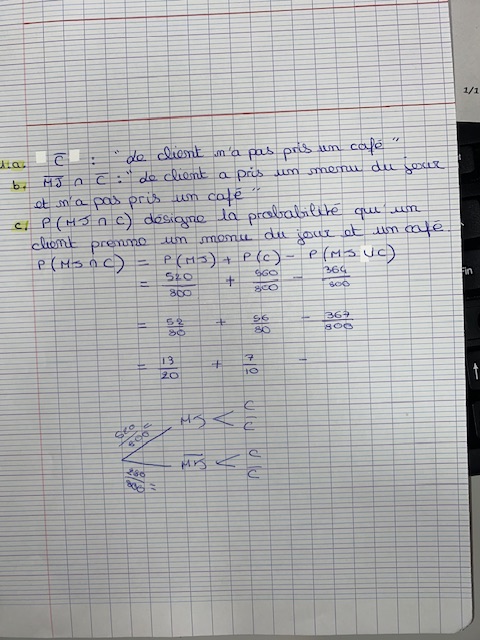 1/1
1.a. C̅ : "de client n'a pas pris un café"
b. M̅J̅ ∩ C̅ : "de client a pris un menu du jour
et n'a pas pris un café"
c. P(MJ ∩ C) désigne la probabilité qu'un
client prenne un menu du jour et un café.
P(MJ ∩ C) = P(MJ) + P(C) - P(MJ ∪ C)
= 520/800 + 560/800 - 364/800
= 52/80 + 56/80 - 364/800
= 13/20 + 7/10 -
520/800 = MJ C
C̅
280/800 = M̅J̅ C
C̅
Fin